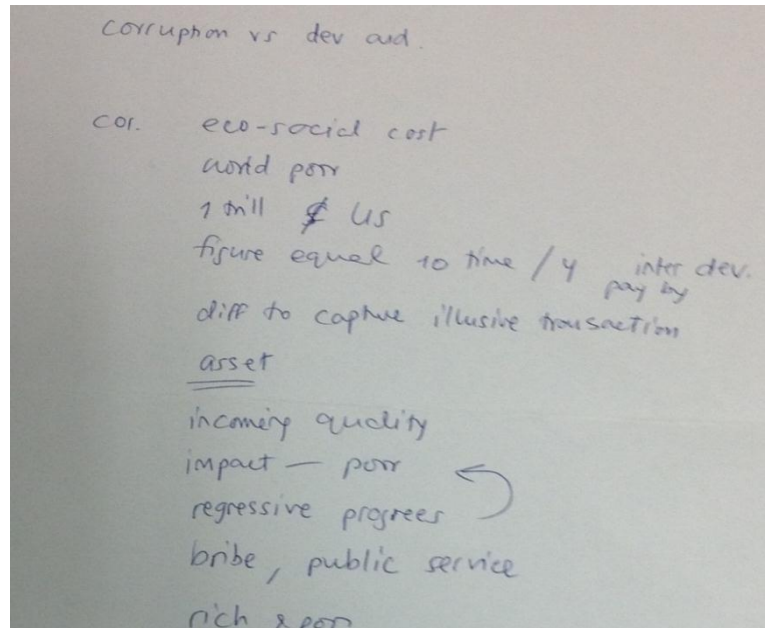 corruption vs dev aid.
cor. eco-social cost
world poor
1 trill $ US
figure equal 10 time / y inter dev.
pay by
diff to capture illusive transaction
asset
incoming quality
impact — poor
regressive progrees
bribe, public service
rich & poor